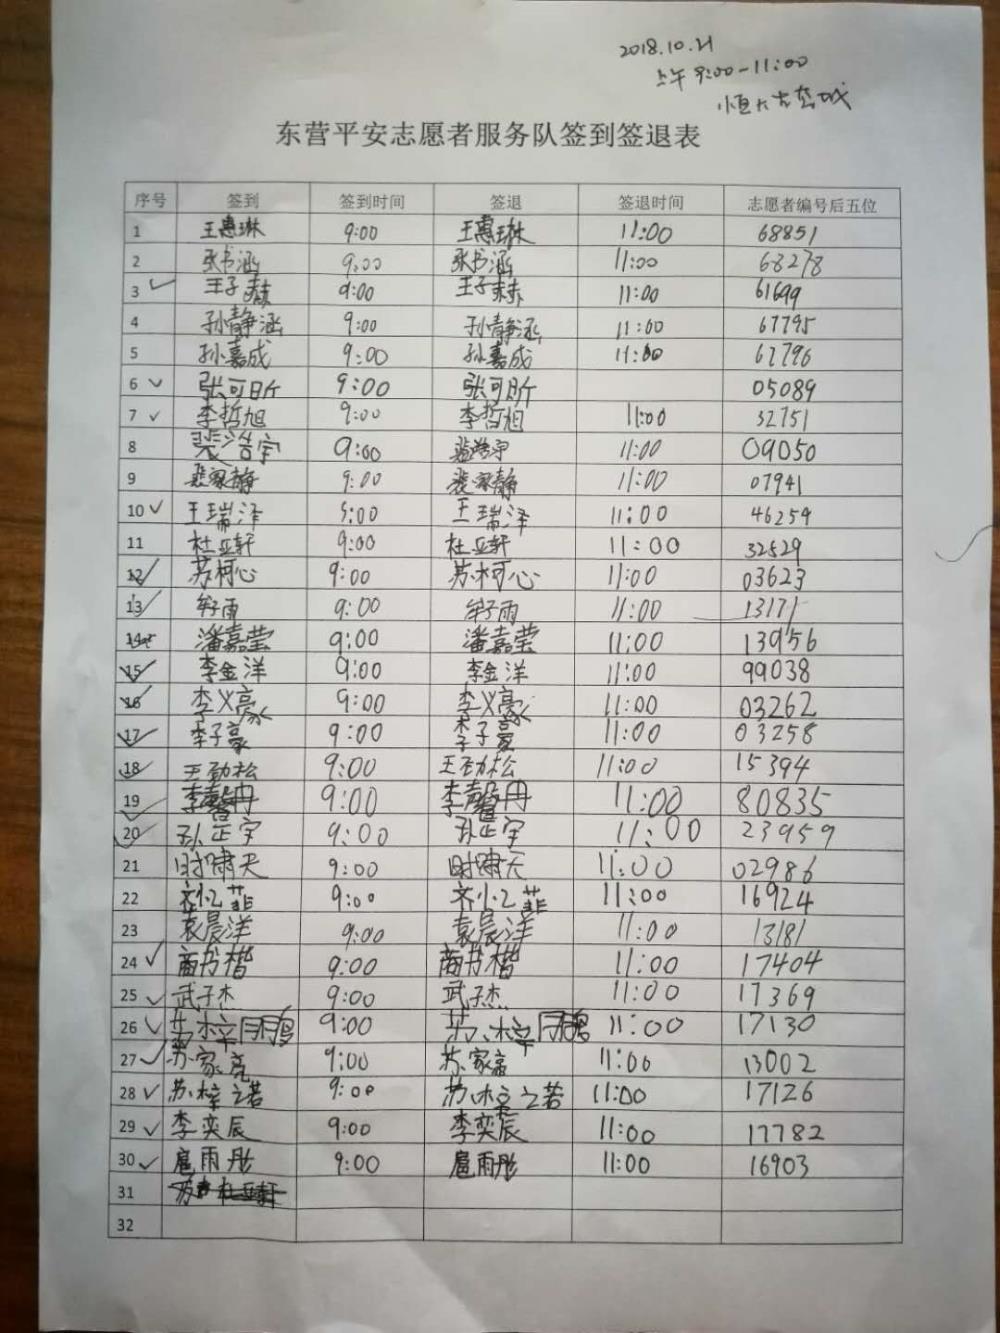 2018.10.21
上午 9:00-11:00
恒大古城
东营平安志愿者服务队签到签退表
序号 签到 签到时间 签退 签退时间 志愿者编号后五位
1 王惠琳 9:00 王惠琳 11:00 68851
2 张书涵 9:00 张书涵 11:00 68278
3 王子赫 9:00 王子赫 11:00 61699
4 孙静涵 9:00 孙静涵 11:00 67795
5 孙嘉成 9:00 孙嘉成 11:00 67796
6 张可昕 9:00 张可昕 05089
7 李哲旭 9:00 李哲旭 11:00 32751
8 裴浩宇 9:00 裴浩宇 11:00 09050
9 裴家静 9:00 裴家静 11:00 07941
10 王瑞泽 9:00 王瑞泽 11:00 46259
11 杜亚轩 9:00 杜亚轩 11:00 32529
12 苏柯心 9:00 苏柯心 11:00 03623
13 牟子雨 9:00 牟子雨 11:00 13171
14 潘嘉莹 9:00 潘嘉莹 11:00 13956
15 李金洋 9:00 李金洋 11:00 99038
16 李义豪 9:00 李义豪 11:00 03262
17 李子豪 9:00 李子豪 11:00 03258
18 王劲松 9:00 王劲松 11:00 15394
19 李馨冉 9:00 李馨冉 11:00 80835
20 孙正宇 9:00 孙正宇 11:00 23959
21 时啸天 9:00 时啸天 11:00 02986
22 齐小菲 9:00 齐小菲 11:00 16924
23 袁晨洋 9:00 袁晨洋 11:00 13181
24 商书楷 9:00 商书楷 11:00 17404
25 武子杰 9:00 武子杰 11:00 17369
26 9:00 11:00 17130
27 苏家亮 9:00 苏家亮 11:00 13002
28 苏梓若 9:00 苏梓若 11:00 17126
29 李奕辰 9:00 李奕辰 11:00 17782
30 扈雨彤 9:00 扈雨彤 11:00 16903
31
32